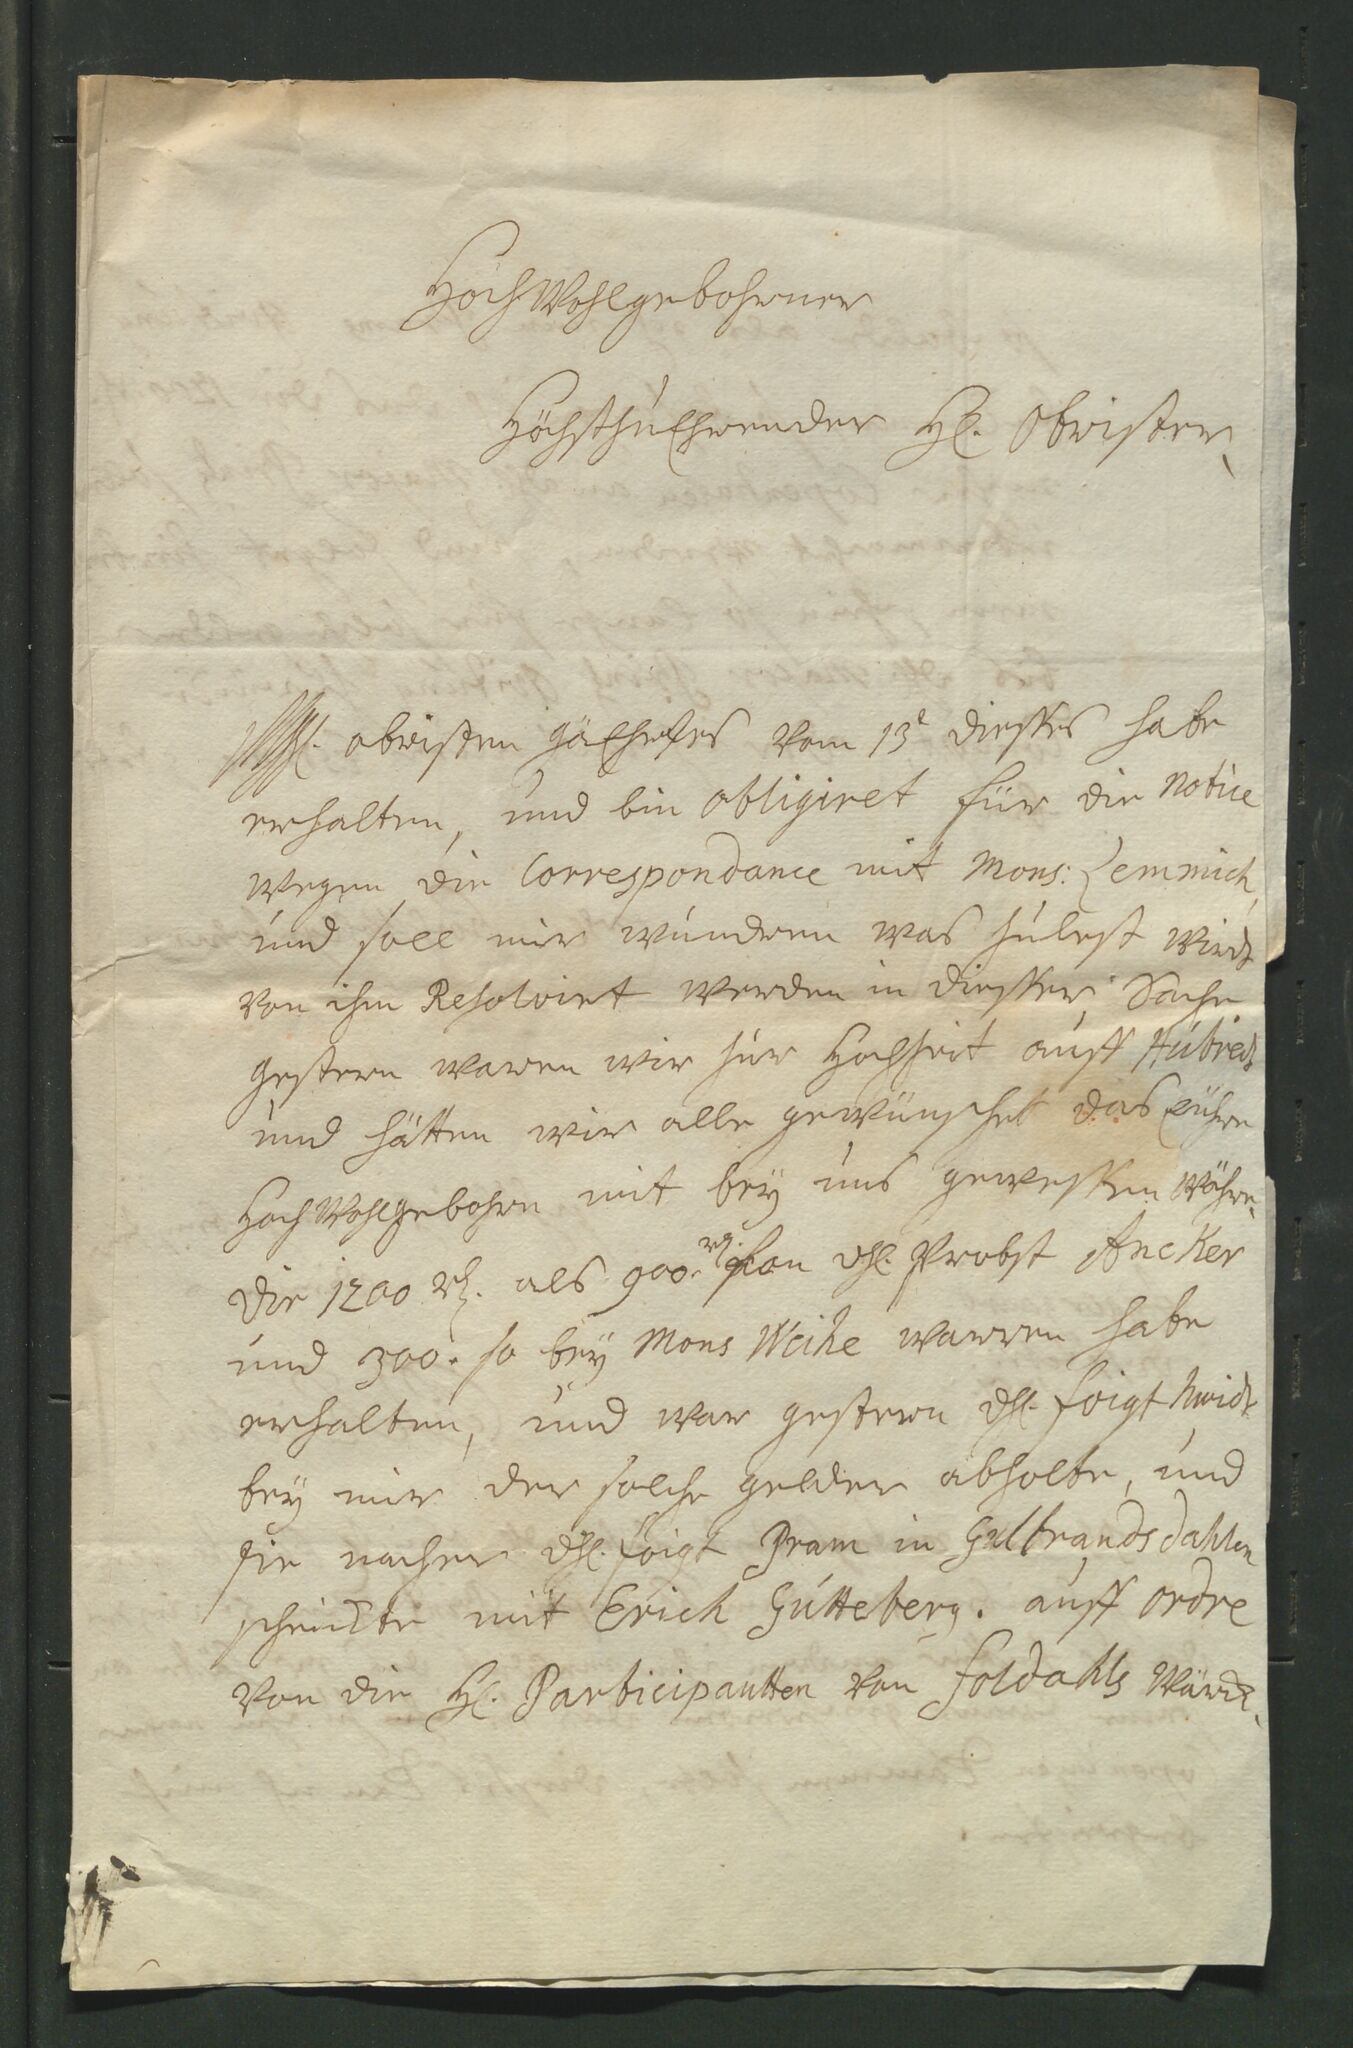 HochWohlgebohrner
Höchstzuehrender H. Obrister,
H. obristen geehrtes vom 13 diesses habe
erhalten, und bin obligiret für die Notice
wegen die Correspondance mit Mons: Lemmich,
und soll mir wundren was zulest wirdt
von ihm Resolvirt werden in diesser Sache
gestern waren wir zur Hochzeit auff Húbred
und hätten wir alle gewünschet das Eühre
HochWohlgebohrn mit beÿ uns gewessen währe,
die 1200 rd. als 900 rd. von H. Probst Ancker
und 300. so beÿ Mons Weihe warren habe
erhalten, und war gestern H. foigt
beÿ mir der solche gelder abholte, und
sie nacher H. foigt Pram in Gulbrandsdahlen
schickte mit Erich Gútteberg. auff ordre
von die H. Participantten von foldahls Wärck,